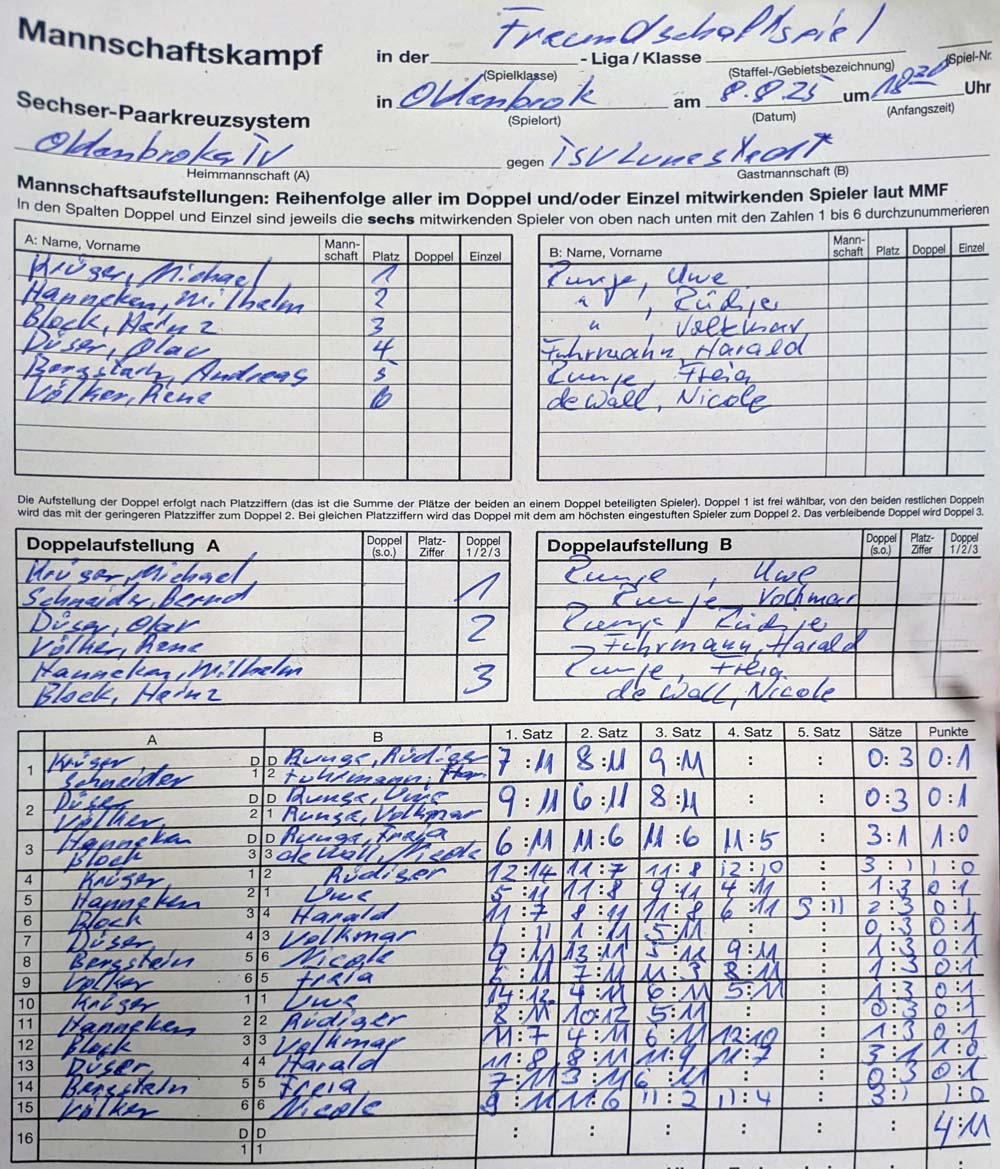 Mannschaftskampf in der Freundschaftsspiel - Liga / Klasse
(Spielklasse) (Staffel-/Gebietsbezeichnung) (Spiel-Nr.
Sechser-Paarkreuzsystem in Oldenbrok am 8.8.25 um Uhr
(Spielort) (Datum) (Anfangszeit)
Oldenbroker TV gegen TSV Lunestedt
Heimmannschaft (A) Gastmannschaft (B)
Mannschaftsaufstellungen: Reihenfolge aller im Doppel und/oder Einzel mitwirkenden Spieler laut MMF
In den Spalten Doppel und Einzel sind jeweils die sechs mitwirkenden Spieler von oben nach unten mit den Zahlen 1 bis 6 durchzunummerieren
A: Name, Vorname Mann-schaft Platz Doppel Einzel B: Name, Vorname Mann-schaft Platz Doppel Einzel
Krüger, Michael 1 Runge, Uwe
Hanneken, Wilhelm 2 " , Rüdiger
Block, Heinz 3 " , Volkmar
Düser, Olav 4 Fuhrmann, Harald
Bergstein, Andreas 5 Runge, Freia
Völker, Rene 6 de Wall, Nicole
Die Aufstellung der Doppel erfolgt nach Platzziffern (das ist die Summe der Plätze der beiden an einem Doppel beteiligten Spieler). Doppel 1 ist frei wählbar, von den beiden restlichen Doppeln
wird das mit der geringeren Platzziffer zum Doppel 2. Bei gleichen Platzziffern wird das Doppel mit dem am höchsten eingestuften Spieler zum Doppel 2. Das verbleibende Doppel wird Doppel 3.
Doppelaufstellung A Doppel (s.o.) Platz-Ziffer Doppel 1/2/3 Doppelaufstellung B Doppel (s.o.) Platz-Ziffer Doppel 1/2/3
Krüger, Michael Runge, Uwe
Schneider, Bernd 1 Runge, Volkmar
Düser, Olav Runge, Rüdiger
Völker, Rene 2 Fuhrmann, Harald
Hanneken, Wilhelm Runge, Freia
Block, Heinz 3 de Wall, Nicole
A B 1. Satz 2. Satz 3. Satz 4. Satz 5. Satz Sätze Punkte
1 Krüger D D Runge, Rüdiger 7:11 8:11 9:11 : : 0:3 0:1
Schneider 1 2 Fuhrmann, Har.
2 Düser D D Runge, Uwe 9:11 6:11 8:11 : : 0:3 0:1
Völker 2 1 Runge, Volkmar
3 Hanneken D D Runge, Freia 6:11 11:6 11:6 11:5 : 3:1 1:0
Block 3 3 de Wall, Nicole
4 Krüger 1 2 Rüdiger 12:14 11:7 11:8 12:10 : 3:1 1:0
5 Hanneken 2 1 Uwe 5:11 11:8 9:11 4:11 : 1:3 0:1
6 Block 3 4 Harald 11:7 8:11 11:8 6:11 5:11 2:3 0:1
7 Düser 4 3 Volkmar 1:11 1:11 5:11 : : 0:3 0:1
8 Bergstein 5 6 Nicole 9:11 13:11 9:11 : 1:3 0:1
9 Völker 6 5 Freia 6:11 7:11 11:3 8:11 : 1:3 0:1
10 Krüger 1 1 Uwe 14:12 4:11 6:11 5:11 : 1:3 0:1
11 Hanneken 2 2 Rüdiger 8:11 10:12 5:11 : : 0:3 0:1
12 Block 3 3 Volkmar 11:7 4:11 6:11 12:10 : 1:3 0:1
13 Düser 4 4 Harald 11:8 8:11 11:9 11:7 : 3:1 1:0
14 Bergstein 5 5 Freia 7:11 3:11 6:11 : : 0:3 0:1
15 Völker 6 6 Nicole 9:11 11:6 11:2 11:4 : 3:1 1:0
16 D D : : : : : : 4:11
1 1